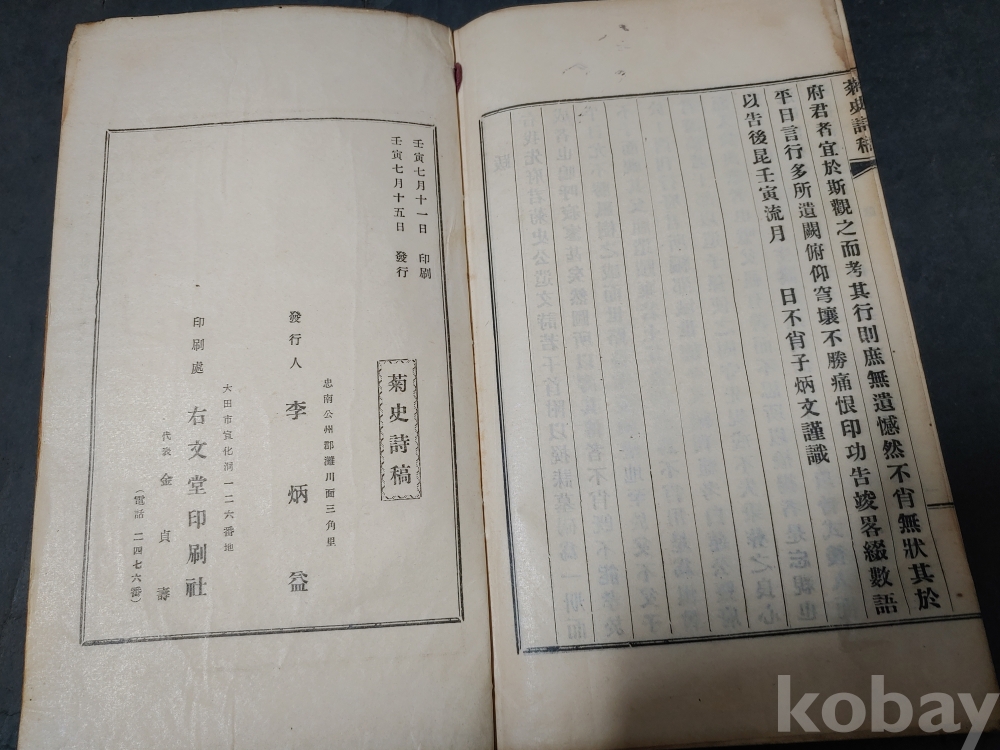 菊史詩稿
府君者宜於斯觀之而考其行則庶無遺憾然不肖無狀其於
平日言行多所遺闕俯仰穹壤不勝痛恨印功告竣畧綴數語
以告後昆壬寅流月 日不肖子炳文謹識
壬寅七月十一日 印刷
壬寅七月十五日 發行
菊史詩稿
忠南公州郡灘川面三角里
發行人 李炳益
大田市宣化洞一二六番地
印刷處 右文堂印刷社
代表 金貞壽
(電話 二四七六番)
kobay